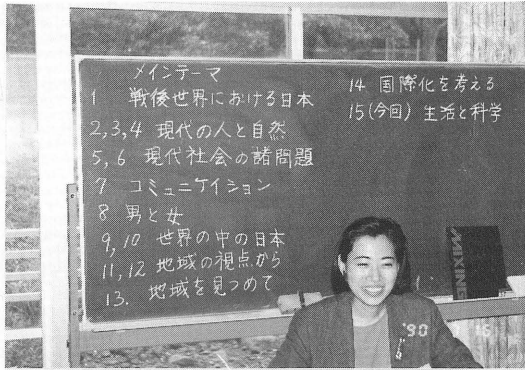 メインテーマ
1 戦後世界における日本
2,3,4 現代の人と自然
5,6 現代社会の諸問題
7 コミュニケイション
8 男と女
9,10 世界の中の日本
11,12 地域の視点から
13. 地域を見つめて
14 国際化を考える
15(今回) 生活と科学
MIXING
'90
16